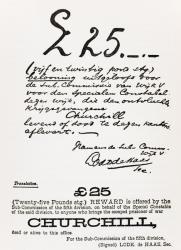 £ 25.–.–
(vijf en twintig pond stg.)
belooning uitgeloofd door
de Sub-Commissie van Wijk V
voor den Specialen Constabel
dezer wijk, die den ontvluchte
Krijgsgevangene
Churchill
levend of dood te dezen kantore
aflevert.
Namens de Sub-Comm.
Wijk V
Lodk de Haas
Sec.
Translation.
£25
(Twenty-five Pounds stg.) REWARD is offered by the
Sub-Commission of the fifth division, on behalf of the Special Constable
of the said division, to anyone who brings the escaped prisoner of war
CHURCHILL,
dead or alive to this office.
For the Sub-Commission of the fifth division,
(Signed) LODK. de HAAS, Sec.